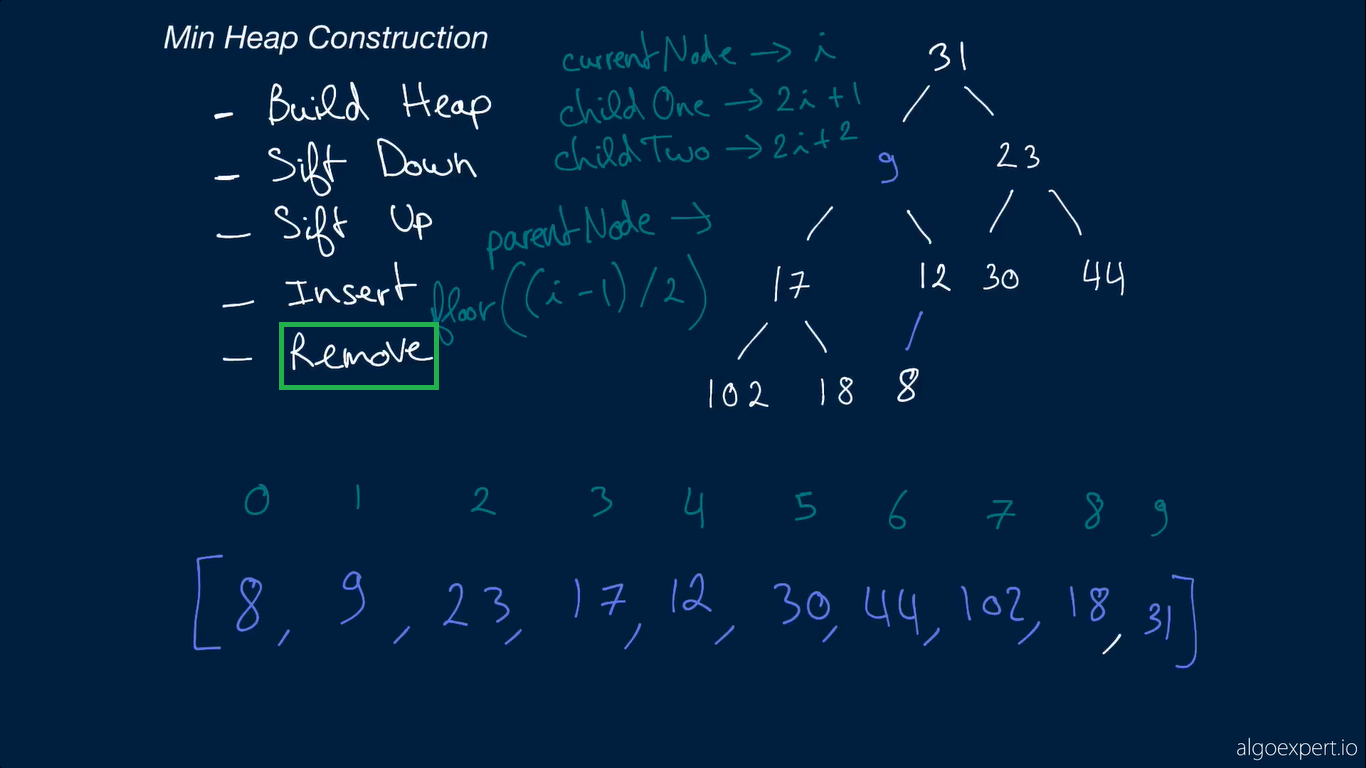 Min Heap Construction
- Build Heap
- Sift Down
- Sift Up
- Insert
- Remove
currentNode → i
childOne → 2i+1
childTwo → 2i+2
parentNode →
floor((i-1)/2)
31
9 23
17 12 30 44
102 18 8
0 1 2 3 4 5 6 7 8 9
[8, 9, 23, 17, 12, 30, 44, 102, 18, 31]
algoexpert.io